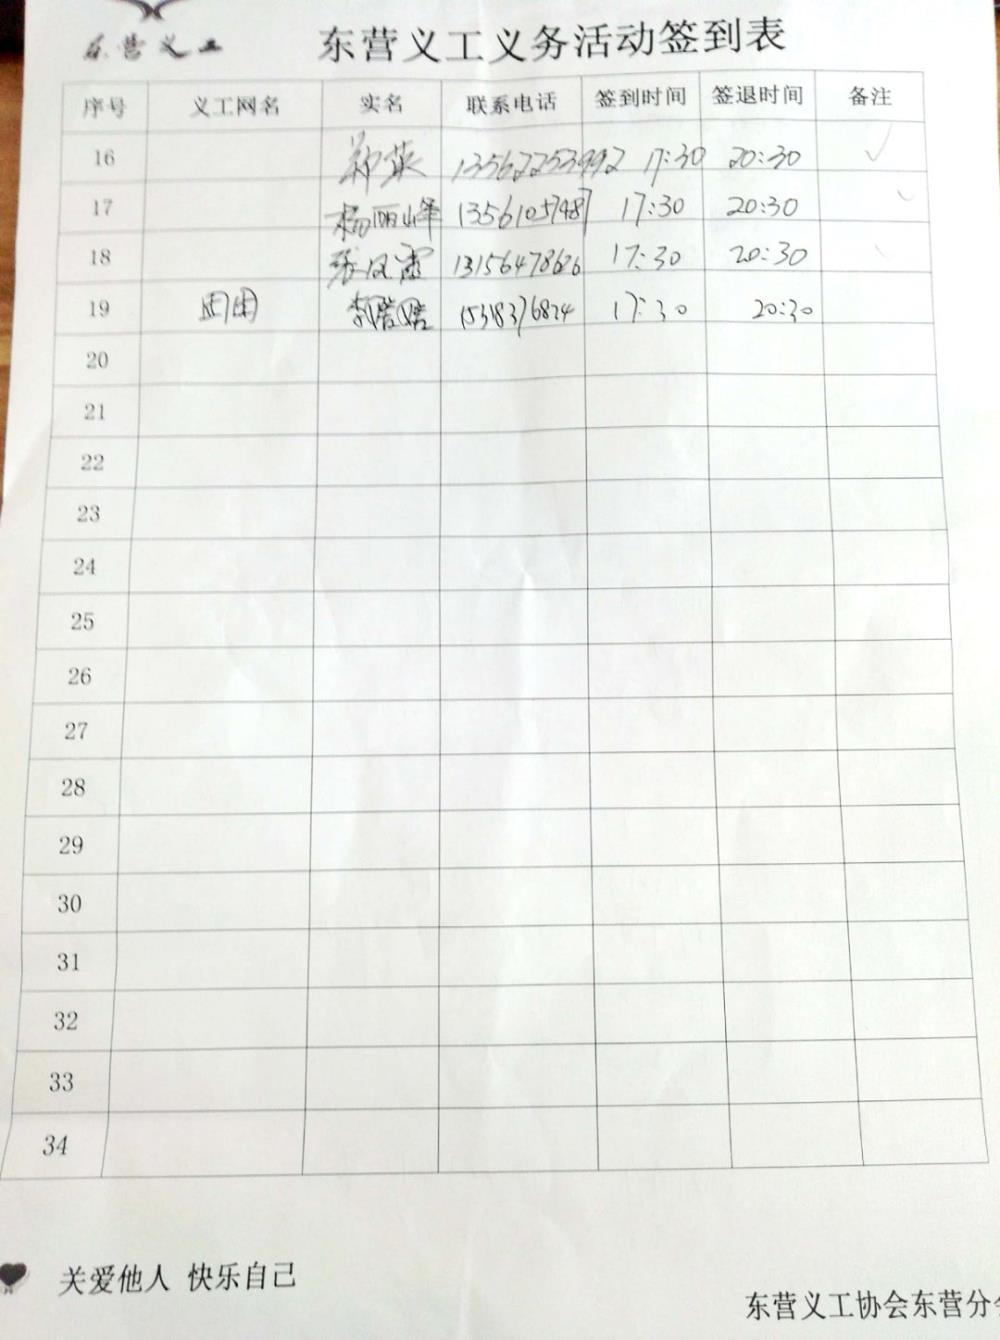 东营义工 东营义工义务活动签到表
序号 义工网名 实名 联系电话 签到时间 签退时间 备注
16 郑英 13562253992 17:30 20:30 ✓
17 杨丽峰 13561057487 17:30 20:30
18 张风霞 13156478626 17:30 20:30
19 15318376824 17:30 20:30
20
21
22
23
24
25
26
27
28
29
30
31
32
33
34
关爱他人 快乐自己
东营义工协会东营分